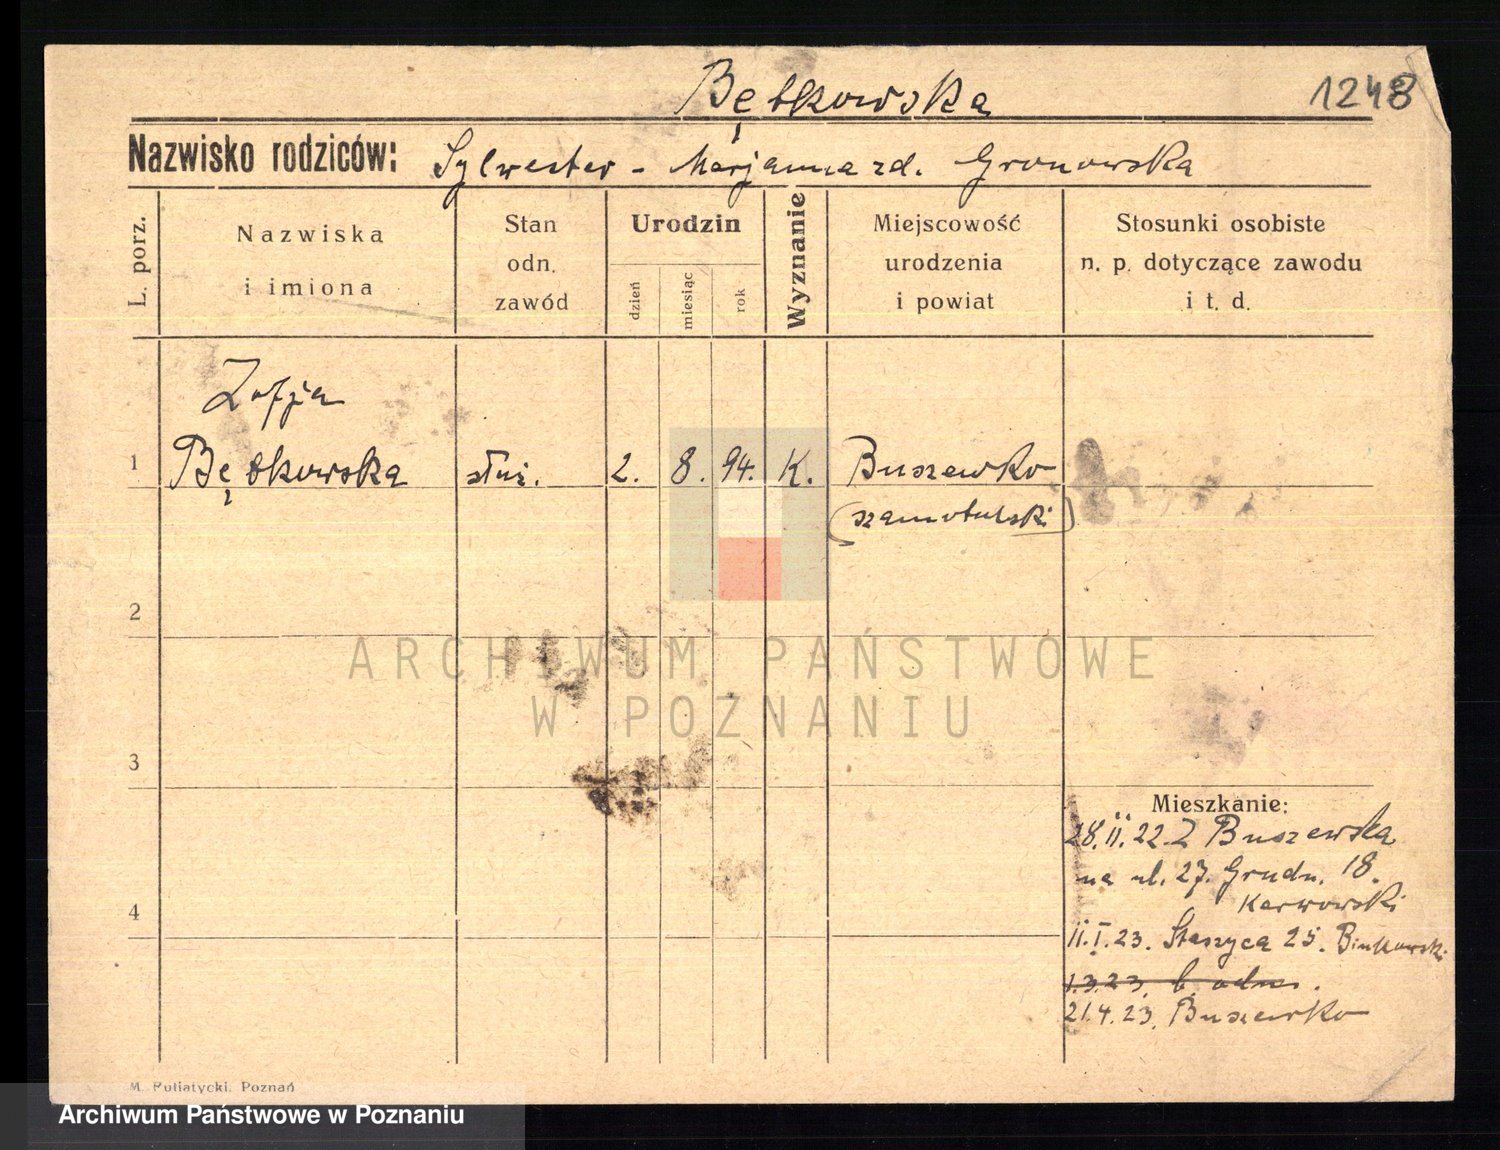 Bętkowska
1248
Nazwisko rodziców: Sylwester - Marjanna zd. Gronowska
L. porz.
Nazwiska
i imiona
Stan
odn.
zawód
Urodzin
dzień
miesiąc
rok
Wyznanie
Miejscowość
urodzenia
i powiat
Stosunki osobiste
n. p. dotyczące zawodu
i t. d.
Zofja
1 Bętkowska służ. 2. 8. 94. K. Buszewko
(szamotulski)
2
ARCHIWUM PAŃSTWOWE
W POZNANIU
3
Mieszkanie:
28.II.22. Z Buszewska
na ul. 27. Grudn. 18.
Karwowski
4
II.I.23. Staszyca 25. Binkowski
1.3.23. b. odm.
21.4.23. Buszewko
M. Putiatycki. Poznań
Archiwum Państwowe w Poznaniu